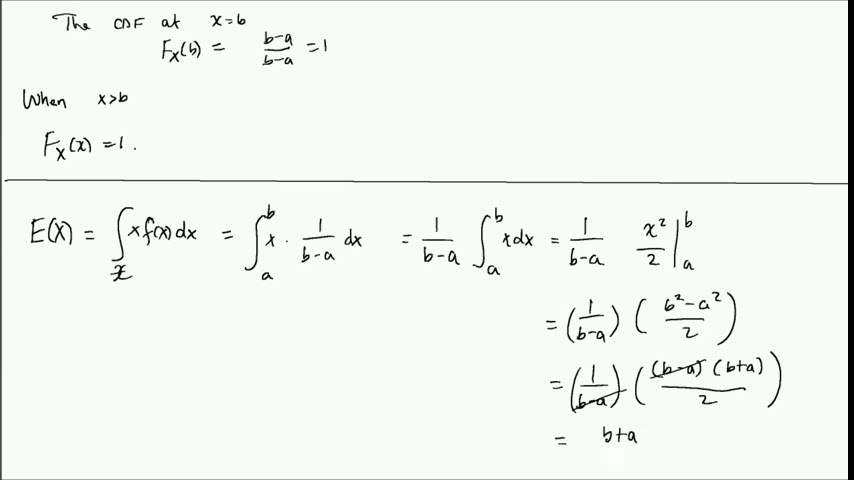 The CDF at x=b
F_X(b) = \frac{b-a}{b-a} = 1
When x>b
F_X(x) = 1.
E(X) = \int_{\mathcal{X}} x f(x) dx = \int_a^b x \cdot \frac{1}{b-a} dx = \frac{1}{b-a} \int_a^b x dx = \frac{1}{b-a} \frac{x^2}{2} |_a^b
= (\frac{1}{b-a}) (\frac{b^2-a^2}{2})
= (\frac{1}{b-a}) (\frac{(b-a)(b+a)}{2})
= b+a